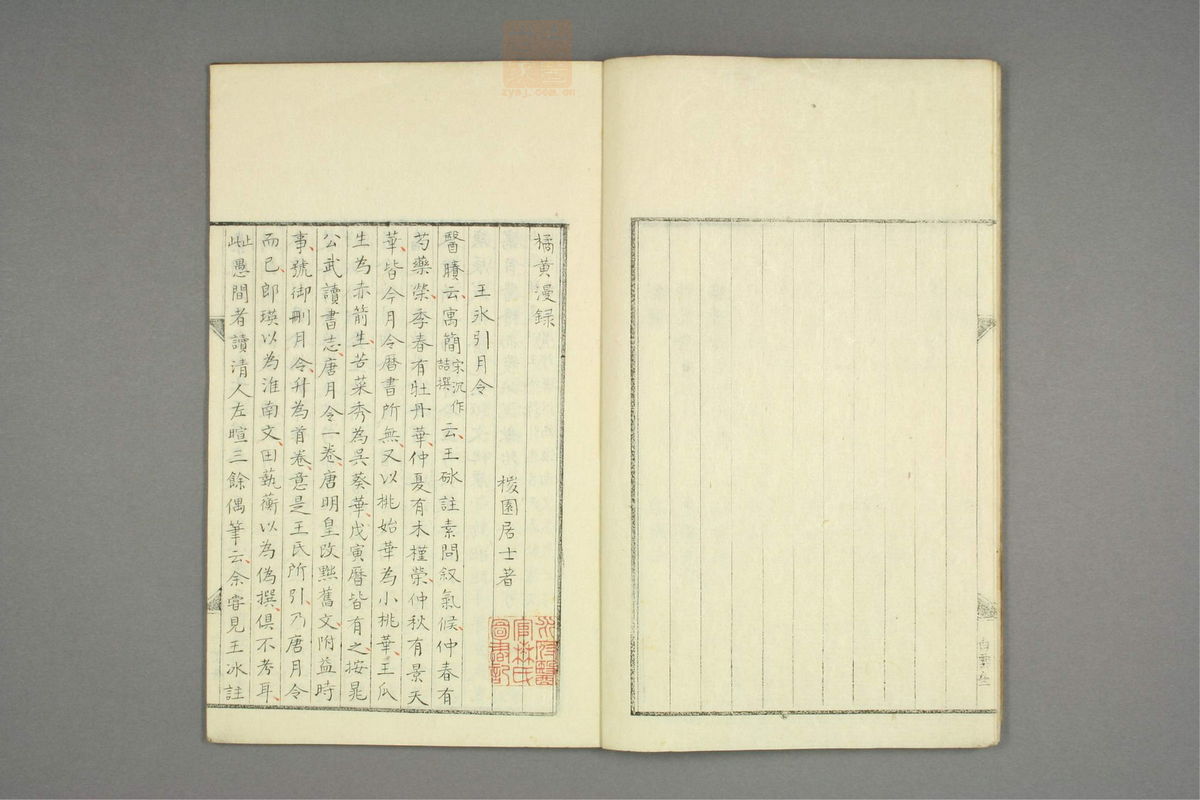 橘黃漫録
椶園居士著
王氷引月令
醫賸云寓簡宋沉作喆撰云王砅註素問叙氣候仲春有
芍藥榮季春有牡丹華仲夏有木槿榮仲秋有景天
華皆今月令曆書所無又以桃始華為小桃華王瓜
生為赤箭生苦菜秀為吳葵華戊寅曆皆有之按晁
公武讀書志唐月令一卷唐明皇改黙舊文附益時
事號御刪月令升為首卷意是王氏所引乃唐月令
而已郎瑛以為淮南文田藝蘅以為偽撰俱不考耳
止此愚間者讀清人左暄三餘偶筆云余嘗見王冰註
zysj.com.cn